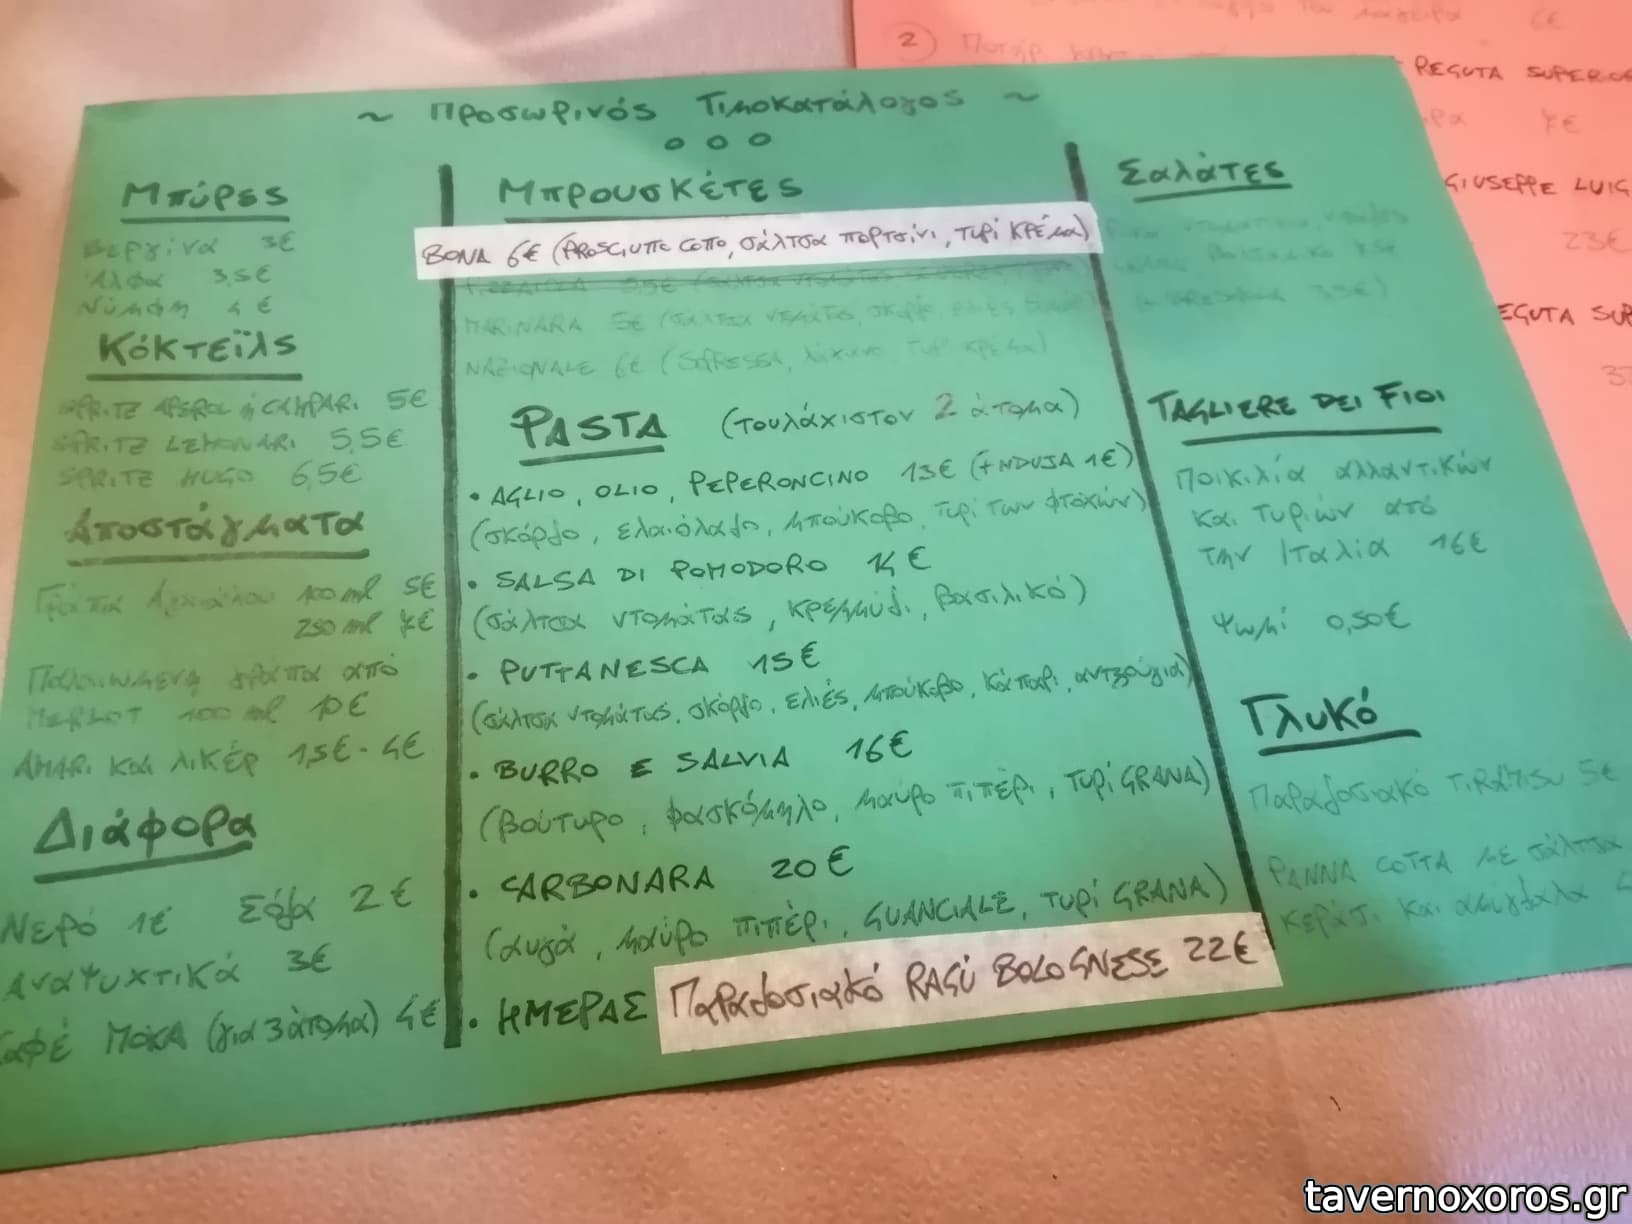 ~ Προσωρινός Τιμοκατάλογος ~
Μπύρες
Βεργίνα 3€
Άλφα 3,5€
Νύμφη 4€
Κόκτεϊλς
SPRITZ APEROL ή CAMPARI 5€
SPRITZ LEMONARI 5,5€
SPRITZ HUGO 6,5€
Αποστάγματα
100 ml 5€
250 ml 7€
Παλαιωμένη γράπα από
MERLOT 100 ml 10€
AMARI και λικέρ 1,5€ - 4€
Διάφορα
Νερό 1€ Σόδα 2€
Αναψυκτικά 3€
ΜΟΚΑ (για 3 άτομα) 4€
Μπρουσκέτες
BONA 6€ (PROSCIUTTO COTTO, σάλτσα πορτσίνι, τυρί κρέμα)
MARINARA 5€ (σάλτσα ντομάτα, σκόρδο, ελιές
NAZIONALE 6€ (SOPRESSA, τυρί κρέμα)
PASTA (τουλάχιστον 2 άτομα)
• AGLIO, OLIO, PEPERONCINO 13€ (+NDUJA 1€)
(σκόρδο, ελαιόλαδο, μπούκοβο, τυρί των φτωχών)
• SALSA DI POMODORO 14€
(σάλτσα ντομάτας, κρεμμύδι, βασιλικό)
• PUTTANESCA 15€
(σάλτσα ντομάτας, σκόρδο, ελιές, μπούκοβο, κάπαρι, αντζούγια)
• BURRO E SALVIA 16€
(βούτυρο, φασκόμηλο, μαύρο πιπέρι, τυρί GRANA)
• CARBONARA 20€
(αυγά, μαύρο πιπέρι, GUANCIALE, τυρί GRANA)
• ΗΜΕΡΑΣ Παραδοσιακό RAGÙ BOLOGNESE 22€
Σαλάτες
TAGLIERE DEI FIOI
Ποικιλία αλλαντικών
και τυριών από
την Ιταλία 16€
Ψωμί 0,50€
Γλυκό
Παραδοσιακό TIRAMISU 5€
PANNA COTTA με σάλτσα
κεράσι και αμύγδαλα
6€
2) Ποτήρ
REGUTA SUPERIOR
7€
GIUSEPPE LUIG
23€
EGUTA SUP
tavernoxoros.gr